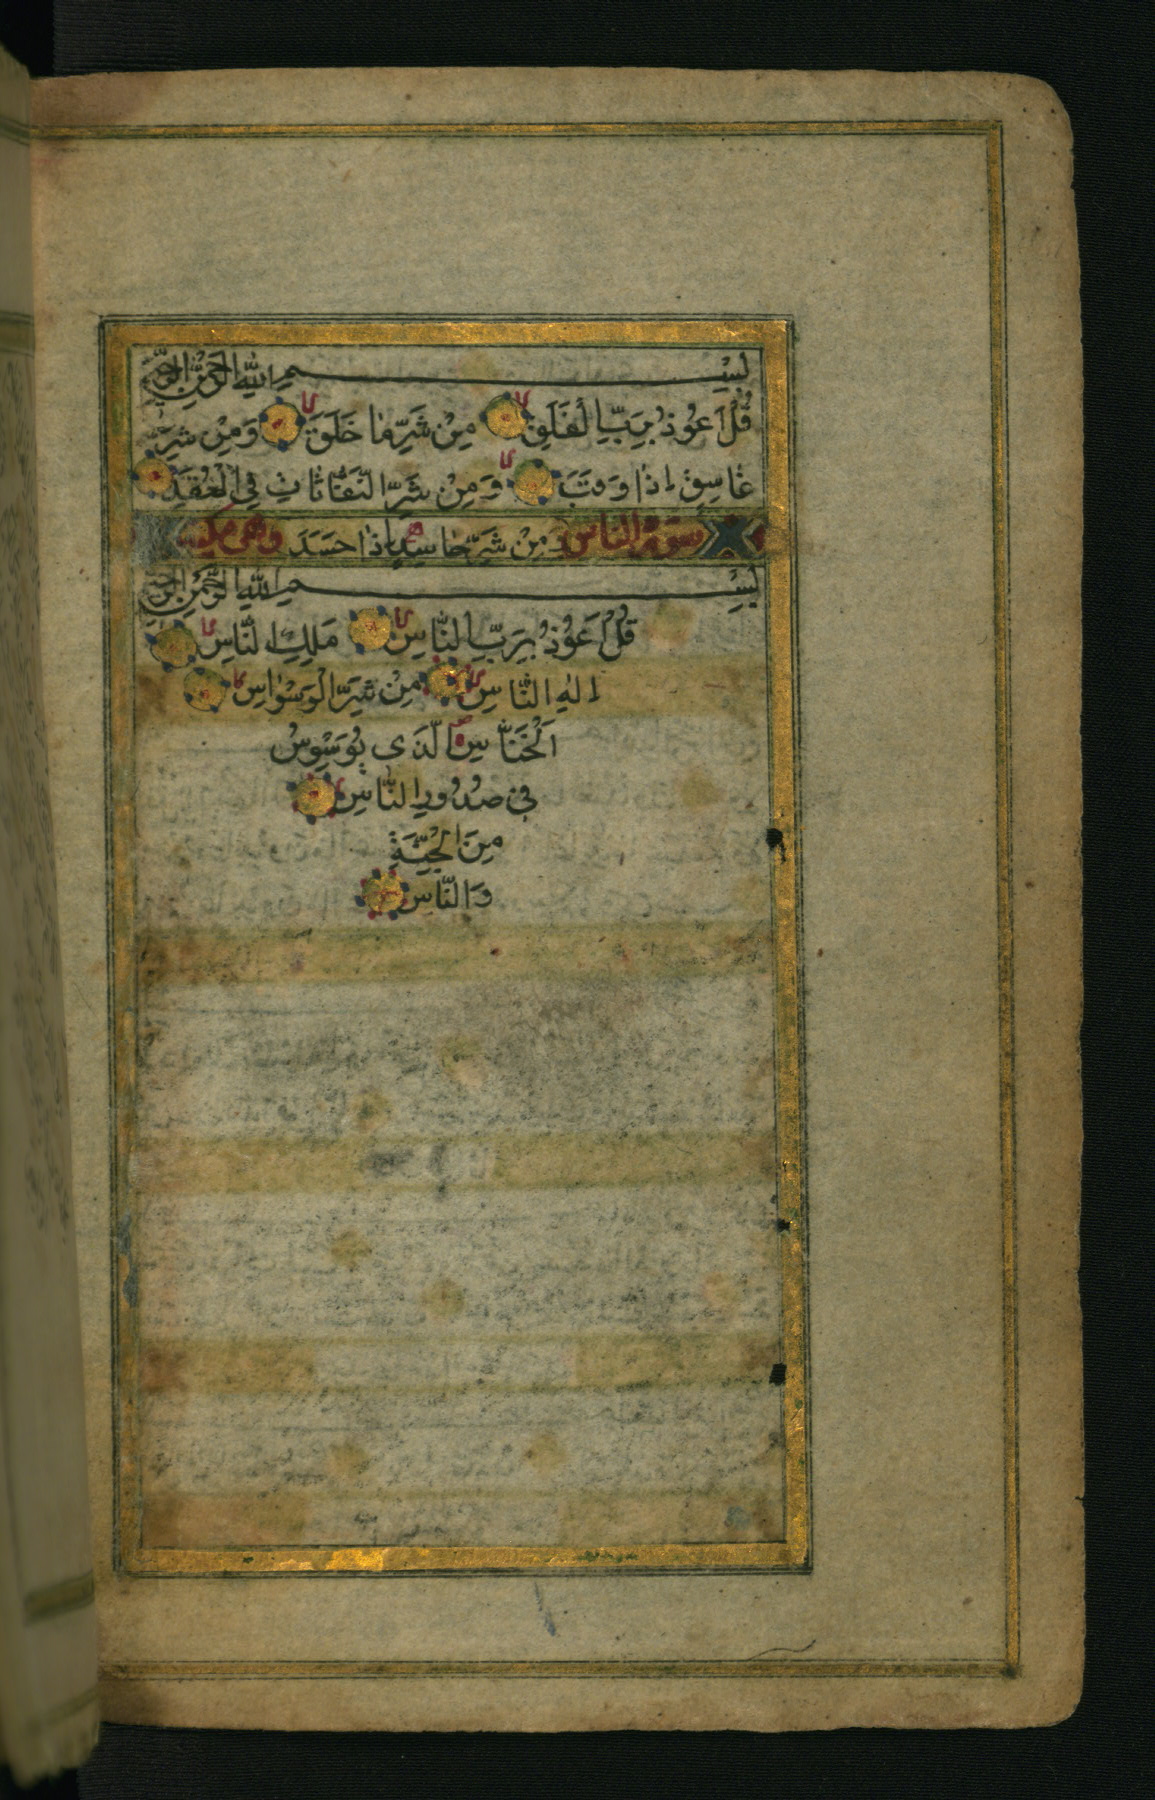 بِسْمِ اللَّهِ الرَّحْمَٰنِ الرَّحِيمِ
قُلْ اَعُوذُ بِرَبِّ الْفَلَقِ لا مِنْ شَرِّ مَا خَلَقَ لا وَمِنْ شَرِّ
غَاسِقٍ اِذَا وَقَبَ لا وَمِنْ شَرِّ النَّفَّاثَاتِ فِي الْعُقَدِ
وَمِنْ شَرِّ حَاسِدٍ اِذَا حَسَدَ سورة الناس وهي مكية
بِسْمِ اللَّهِ الرَّحْمَٰنِ الرَّحِيمِ
قُلْ اَعُوذُ بِرَبِّ النَّاسِ لا مَلِكِ النَّاسِ لا
اِلٰهِ النَّاسِ لا مِنْ شَرِّ الْوَسْوَاسِ لا
اَلْخَنَّاسِ الَّذِى يُوَسْوِسُ
فِى صُدُورِ النَّاسِ لا
مِنَ الْجِنَّةِ
وَالنَّاسِ